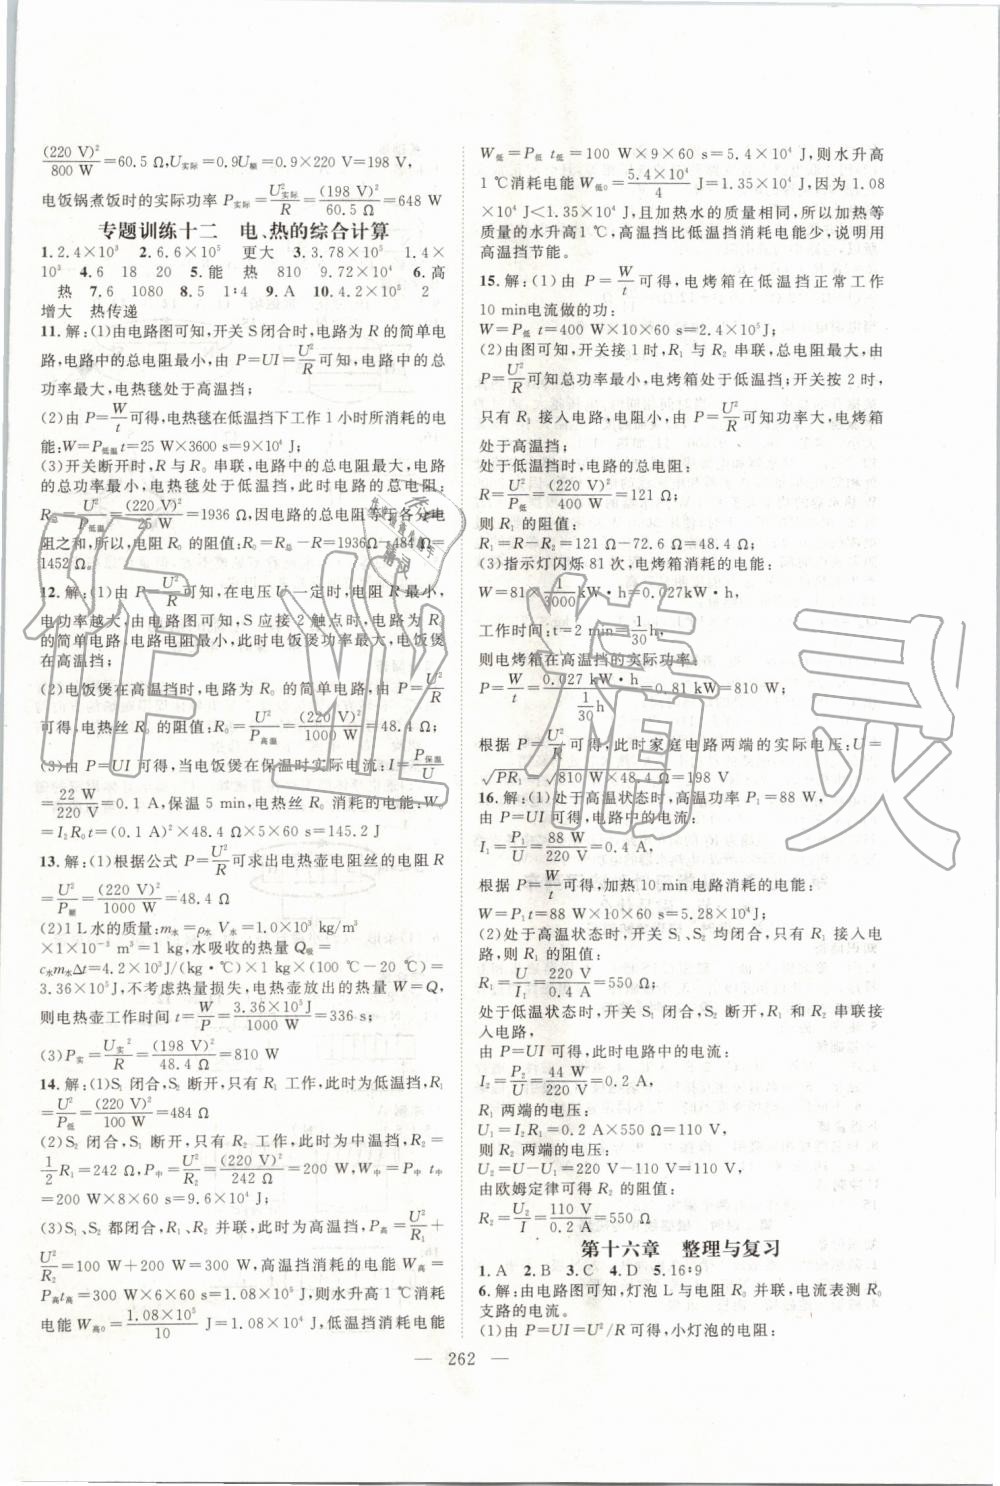 (220 V)²/800 W=60.5 Ω,U实际=0.9U额=0.9×220 V=198 V,
电饭锅煮饭时的实际功率 P实际=U²实际/R=(198 V)²/60.5 Ω=648 W
专题训练十二 电、热的综合计算
1.2.4×10³ 2.6.6×10⁵ 更大 3.3.78×10⁵ 1.4×
10³ 4.6 18 20 5.能 热 810 9.72×10⁴ 6.高
热 7.6 1080 8.5 1∶4 9.A 10.4.2×10⁵ 2
增大 热传递
11.解:(1)由电路图可知,开关 S 闭合时,电路为 R 的简单电
路,电路中的总电阻最小,由 P=UI=U²/R可知,电路中的总
功率最大,电热毯处于高温挡;
(2)由 P=W/t可得,电热毯在低温挡下工作 1 小时所消耗的电
能:W=P低温t=25 W×3600 s=9×10⁴ J;
(3)开关断开时,R 与 R₀ 串联,电路中的总电阻最大,电路
的总功率最小,电热毯处于低温挡,此时电路的总电阻:
R总=U²/P低温=(220 V)²/25 W=1936 Ω,因电路的总电阻等于各分电
阻之和,所以,电阻 R₀ 的阻值:R₀=R总-R=1936Ω-484 Ω=
1452 Ω。
12.解:(1)由 P=U²/R可知,在电压 U 一定时,电阻 R 最小,
电功率越大,由图可知,S 应接 2 触点时,电路为 R₀
的简单电路,电路电阻最小,此时电饭煲功率最大,电饭煲
在高温挡;
(2)电饭煲在高温挡时,电路为 R₀ 的简单电路,由 P=U²/R
可得,电热丝 R₀ 的阻值:R₀=U²/P高温=(220 V)²/1000 W=48.4 Ω;
(3)由 P=UI 可得,当电饭煲在保温时实际电流:I=P保温/U
=22 W/220 V=0.1 A,保温 5 min,电热丝 R₀ 消耗的电能:W₀
=I²R₀t=(0.1 A)²×48.4 Ω×5×60 s=145.2 J
13.解:(1)根据公式 P=U²/R可求出电热壶电阻丝的电阻 R
=U²/P额=(220 V)²/1000 W=48.4 Ω;
(2)1 L 水的质量:m水=ρ水V水=1.0×10³ kg/m³
×1×10⁻³ m³=1 kg,水吸收的热量 Q吸=
c水m水Δt=4.2×10³J/(kg·℃)×1 kg×(100℃-20 ℃)=
3.36×10⁵J,不考虑热量损失,电热壶放出的热量 W=Q,
则电热壶工作时间 t=W/P=3.36×10⁵J/1000 W=336 s;
(3)P实=U实²/R=(198 V)²/48.4 Ω=810 W
14.解:(1)S₁ 闭合,S₂ 断开,只有 R₁ 工作,此时为低温挡,R₁
=U²/P低=(220 V)²/100 W=484 Ω
(2)S₂ 闭合,S₁ 断开,只有 R₂ 工作,此时为中温挡,R₂=
1/2 R₁=242 Ω,P中=U²/R₂=(220 V)²/242 Ω=200 W,W中=P中t中
=200 W×8×60 s=9.6×10⁴ J;
(3)S₁、S₂ 都闭合,R₁、R₂ 并联,此时为高温挡,P高=U²/R₁+
U²/R₂=100 W+200 W=300 W,高温挡消耗的电能 W高=
P高t高=300 W×6×60 s=1.08×10⁵ J,则水升高 1℃消耗
电能 W高0=1.08×10⁵/10 J=1.08×10⁴ J,低温挡消耗电能
W低=P低 t低=100 W×9×60 s=5.4×10⁴J,则水升高
1℃消耗电能 W低0=5.4×10⁴/4 J=1.35×10⁴J,因为 1.08
×10⁴ J<1.35×10⁴ J,且加热水的质量相同,所以加热等
质量的水升高1℃,高温挡比低温挡消耗电能少,说明用
高温挡节能。
15.解:(1)由 P=W/t可得,电烤箱在低温挡正常工作
10 min电流做的功:
W=P低 t=400 W×10×60 s=2.4×10⁵J;
(2)由图可知,开关接 1 时,R₁ 与 R₂ 串联,电阻最大,由
P=U²/R可知总功率最小,电烤箱处于低温挡;开关接 2 时,
只有 R₁ 接入电路,电阻小,由 P=U²/R可知功率大,电烤箱
处于高温挡;
处于低温挡时,电路的总电阻:
R=U²/P低=(220 V)²/400 W=121 Ω,
则 R₁ 的阻值:
R₁=R-R₂=121 Ω-72.6 Ω=48.4 Ω;
(3)指示灯闪烁 81 次,电烤箱消耗的电能:
W=81×1/3000kW·h=0.027kW·h,
工作时间:t=2 min=1/30h,
则电烤箱在高温挡的实际功率:
P=W/t=0.027 kW·h/(1/30 h)=0.81 kW=810 W,
根据 P=U²/R可得,此时家庭电路两端的实际电压:U=
√PR₁=√810 W×48.4 Ω=198 V
16.解:(1)处于高温状态时,高温功率 P₁=88 W,
由 P=UI 可得,电路中的电流:
I₁=P₁/U=88 W/220 V=0.4 A,
根据 P=W/t可得,加热10 min电路消耗的电能:
W=P₁t=88 W×10×60 s=5.28×10⁴J;
(2)处于高温状态时,开关 S₁、S₂ 均闭合,只有 R₁ 接入电
路,R₁ 的阻值:
R₁=U/I₁=220 V/0.4 A=550 Ω;
处于低温状态时,开关 S₁ 闭合,S₂ 断开,R₁ 和 R₂ 串联接
入电路,
由 P=UI 可得,此时电路中的电流:
I₂=P₂/U=44 W/220 V=0.2 A,
R₁ 两端的电压:
U₁=I₂R₁=0.2 A×550 Ω=110 V,
则 R₂ 两端的电压:
U₂=U-U₁=220 V-110 V=110 V,
由欧姆定律可得 R₂ 的阻值:
R₂=U₂/I=110 V/0.2 A=550 Ω
第十六章 整理与复习
1.A 2.B 3.C 4.D 5.16∶9
6.解:由电路图可知,灯泡 L 与电阻 R₀ 并联,电流表测 R₀
支路的电流。
(1)由 P=UI=U²/R 可得,小灯泡的电阻:
— 262 —
作业精灵